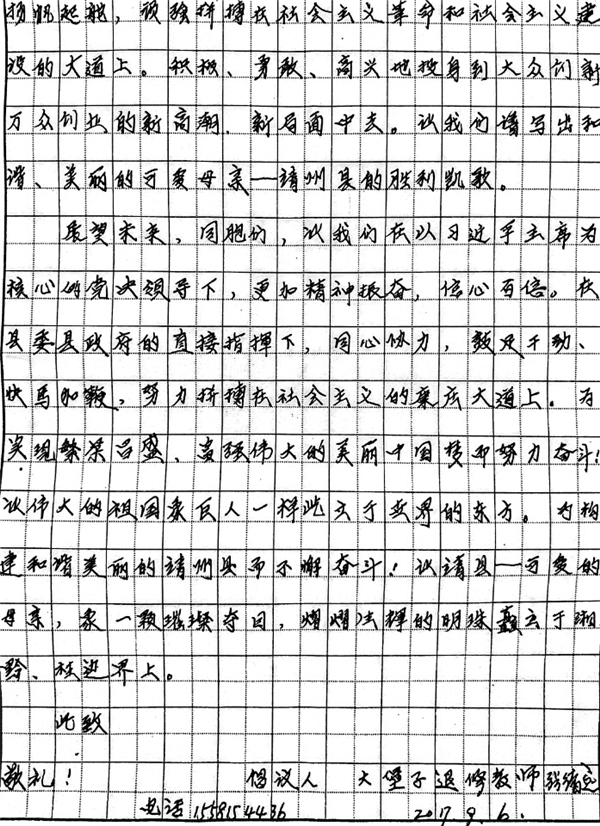 扬帆起航，顽强拼搏在社会主义革命和社会主义建
设的大道上。积极、勇敢、高兴地投身到大众创新
万众创业的新高潮、新局面中去。让我们谱写出和
谐、美丽的可爱母亲——靖州县的胜利凯歌。
展望未来，同胞们，让我们在以习近平主席为
核心的党决领导下，更加精神振奋，信心百倍。在
县委县政府的直接指挥下，同心协力，鼓足干劲、
快马加鞭，努力拼搏在社会主义的康庄大道上。为
实现繁荣昌盛、富强伟大的美丽中国梦而努力奋斗！
让伟大的祖国象巨人一样屹立于世界的东方。为构
建和谐美丽的靖州县而不懈奋斗！让靖县——可爱的
母亲，象一颗璀璨夺目，熠熠生辉的明珠矗立于湘
黔、桂边界上。
此致
敬礼！ 倡议人 大堡子退修教师张
电话1558154436 2017.9.6.